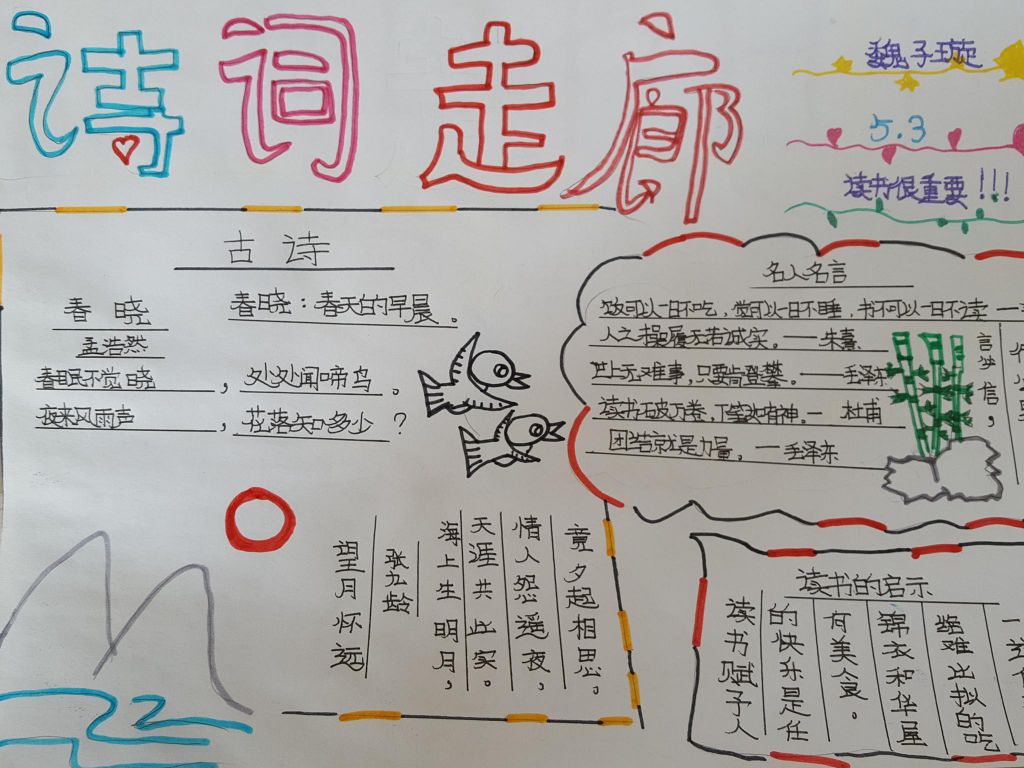 诗词走廊
魏子璇
5.3
读书很重要!!!
古诗
春晓
孟浩然
春眠不觉晓,处处闻啼鸟。
夜来风雨声,花落知多少?
春晓:春天的早晨。
望月怀远
张九龄
海上生明月,
天涯共此家。
情人怨遥夜,
竟夕起相思。
名人名言
可以一日不吃,觉可以一日不睡,书不可以一日不读——
人之操履无若诚实。——朱熹
世上无难事,只要肯登攀。——毛泽东
读书破万卷,下笔如有神。— 杜甫
团结就是力量。—毛泽东
言必信,
读书的启示
读书赋予人
的快乐是任
有美食。
锦衣和华屋
都难比拟的吃